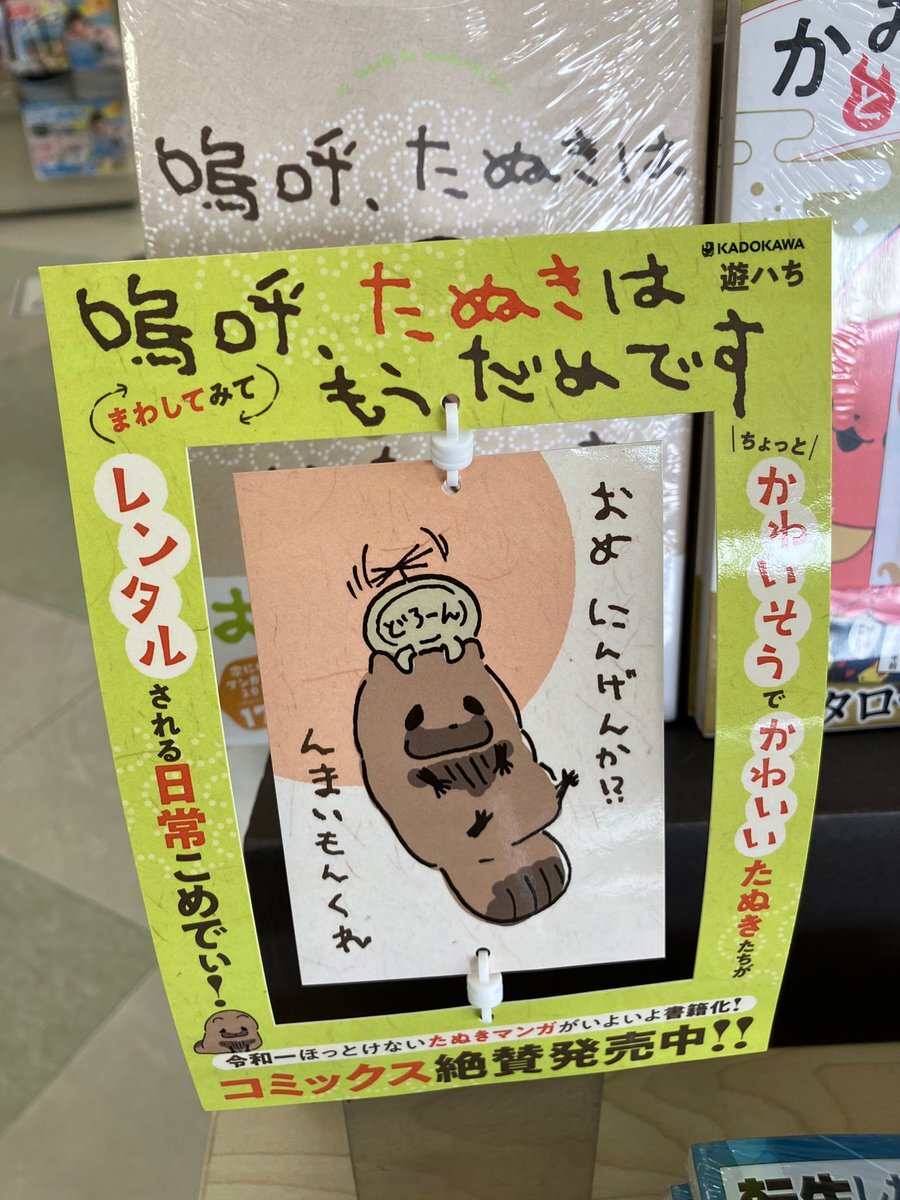 嗚呼、たぬきは
KADOKAWA
遊ハち
嗚呼、たぬきは
もう、だめです
まわしてみて
ちょっと
かわいそうでかわいいたぬきたちが
レンタルされる日常こめでぃ!
おめ にんげんか!?
どろーん
んまいもんくれ
令和一ほっとけないたぬきマンガがいよいよ書籍化!
コミックス絶賛発売中!!
か
お
タロ